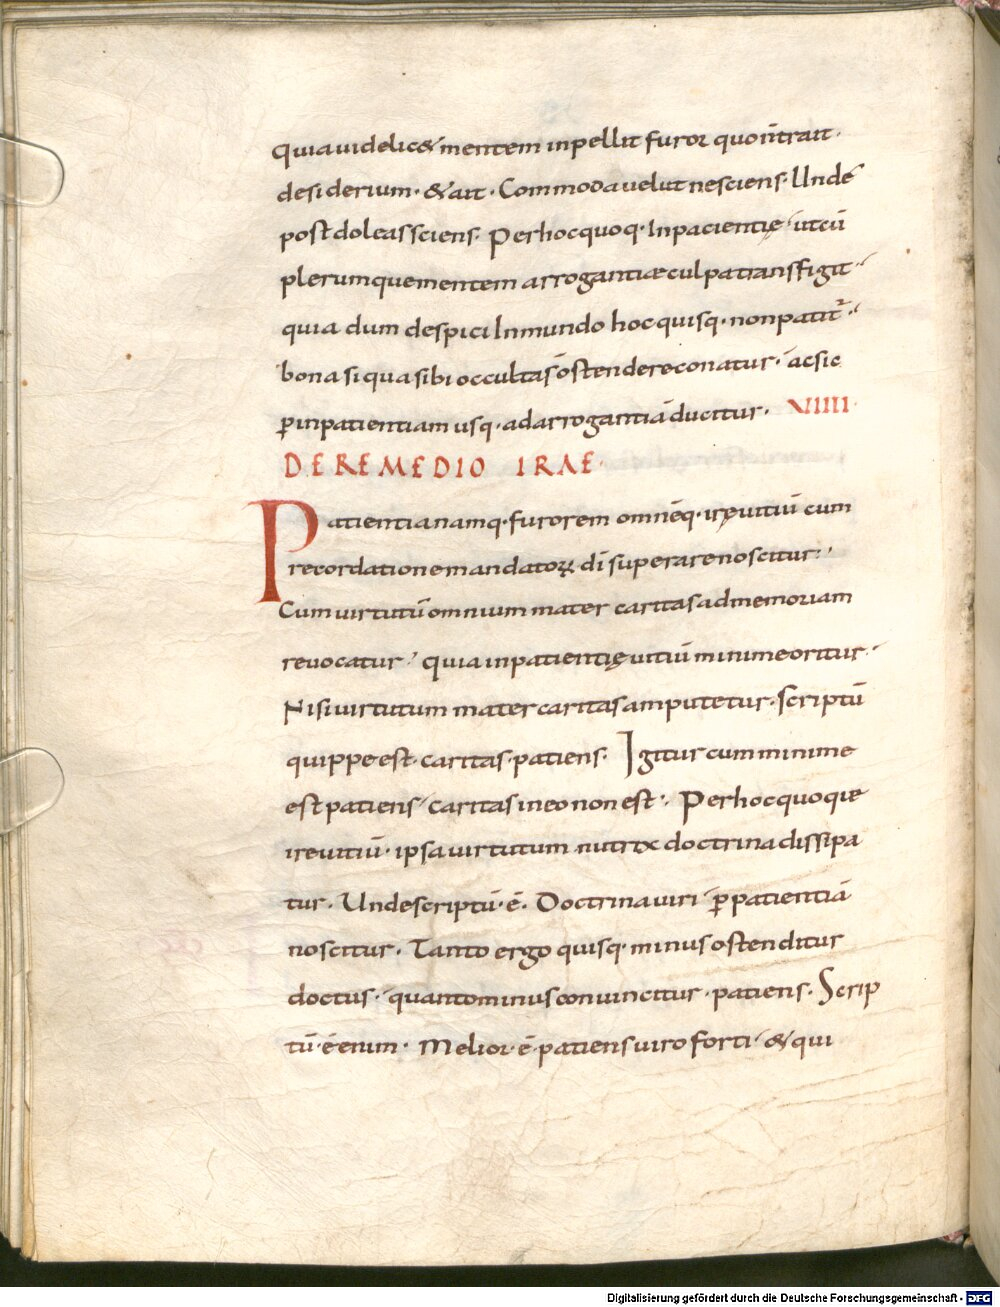 quia uidelic& mentem inpellit furor quo n̄ trait ·
desiderium · & ait · Commoda uelut nesciens · Unde
post doleas sciens · Per hoc quoq· Inpacientię utcū
plerumque mentem arrogantiae culpa transfigit ·
quia dum despici In mundo hoc quisq· non patit᷑ ·
bona si qua sibi occulta s̄ ostendere conatur · ac sic
ꝑ inpatientiam usq· ad arrogantiā ducitur · VIIII ·
DE REMEDIO IRAE ·
Patientia namq· furorem omnēq· irę uitiū cum
recordatione mandatoꝝ dī superare noscitur ·
Cum uirtutū omnium mater caritas ad memoriam
reuocatur · quia inpatientię uitiū minime oritur ·
Nisi uirtutum mater caritas amputetur · scriptū
quippe est · caritas patiens · Igitur cum minime
est patiens caritas in eo non est · Per hoc quoque
ire uitiū · ipsa uirtutum nutrix doctrina dissipa
tur · Unde scriptū · ē · Doctrina uiri ꝑ patientiā
noscitur · Tanto ergo quisq· minus ostenditur
doctus · quanto minus conuincitur · patiens · Scrip
tū · ē enim · Melior · ē · patiens uiro forti · & qui
Digitalisierung gefördert durch die Deutsche Forschungsgemeinschaft - DFG